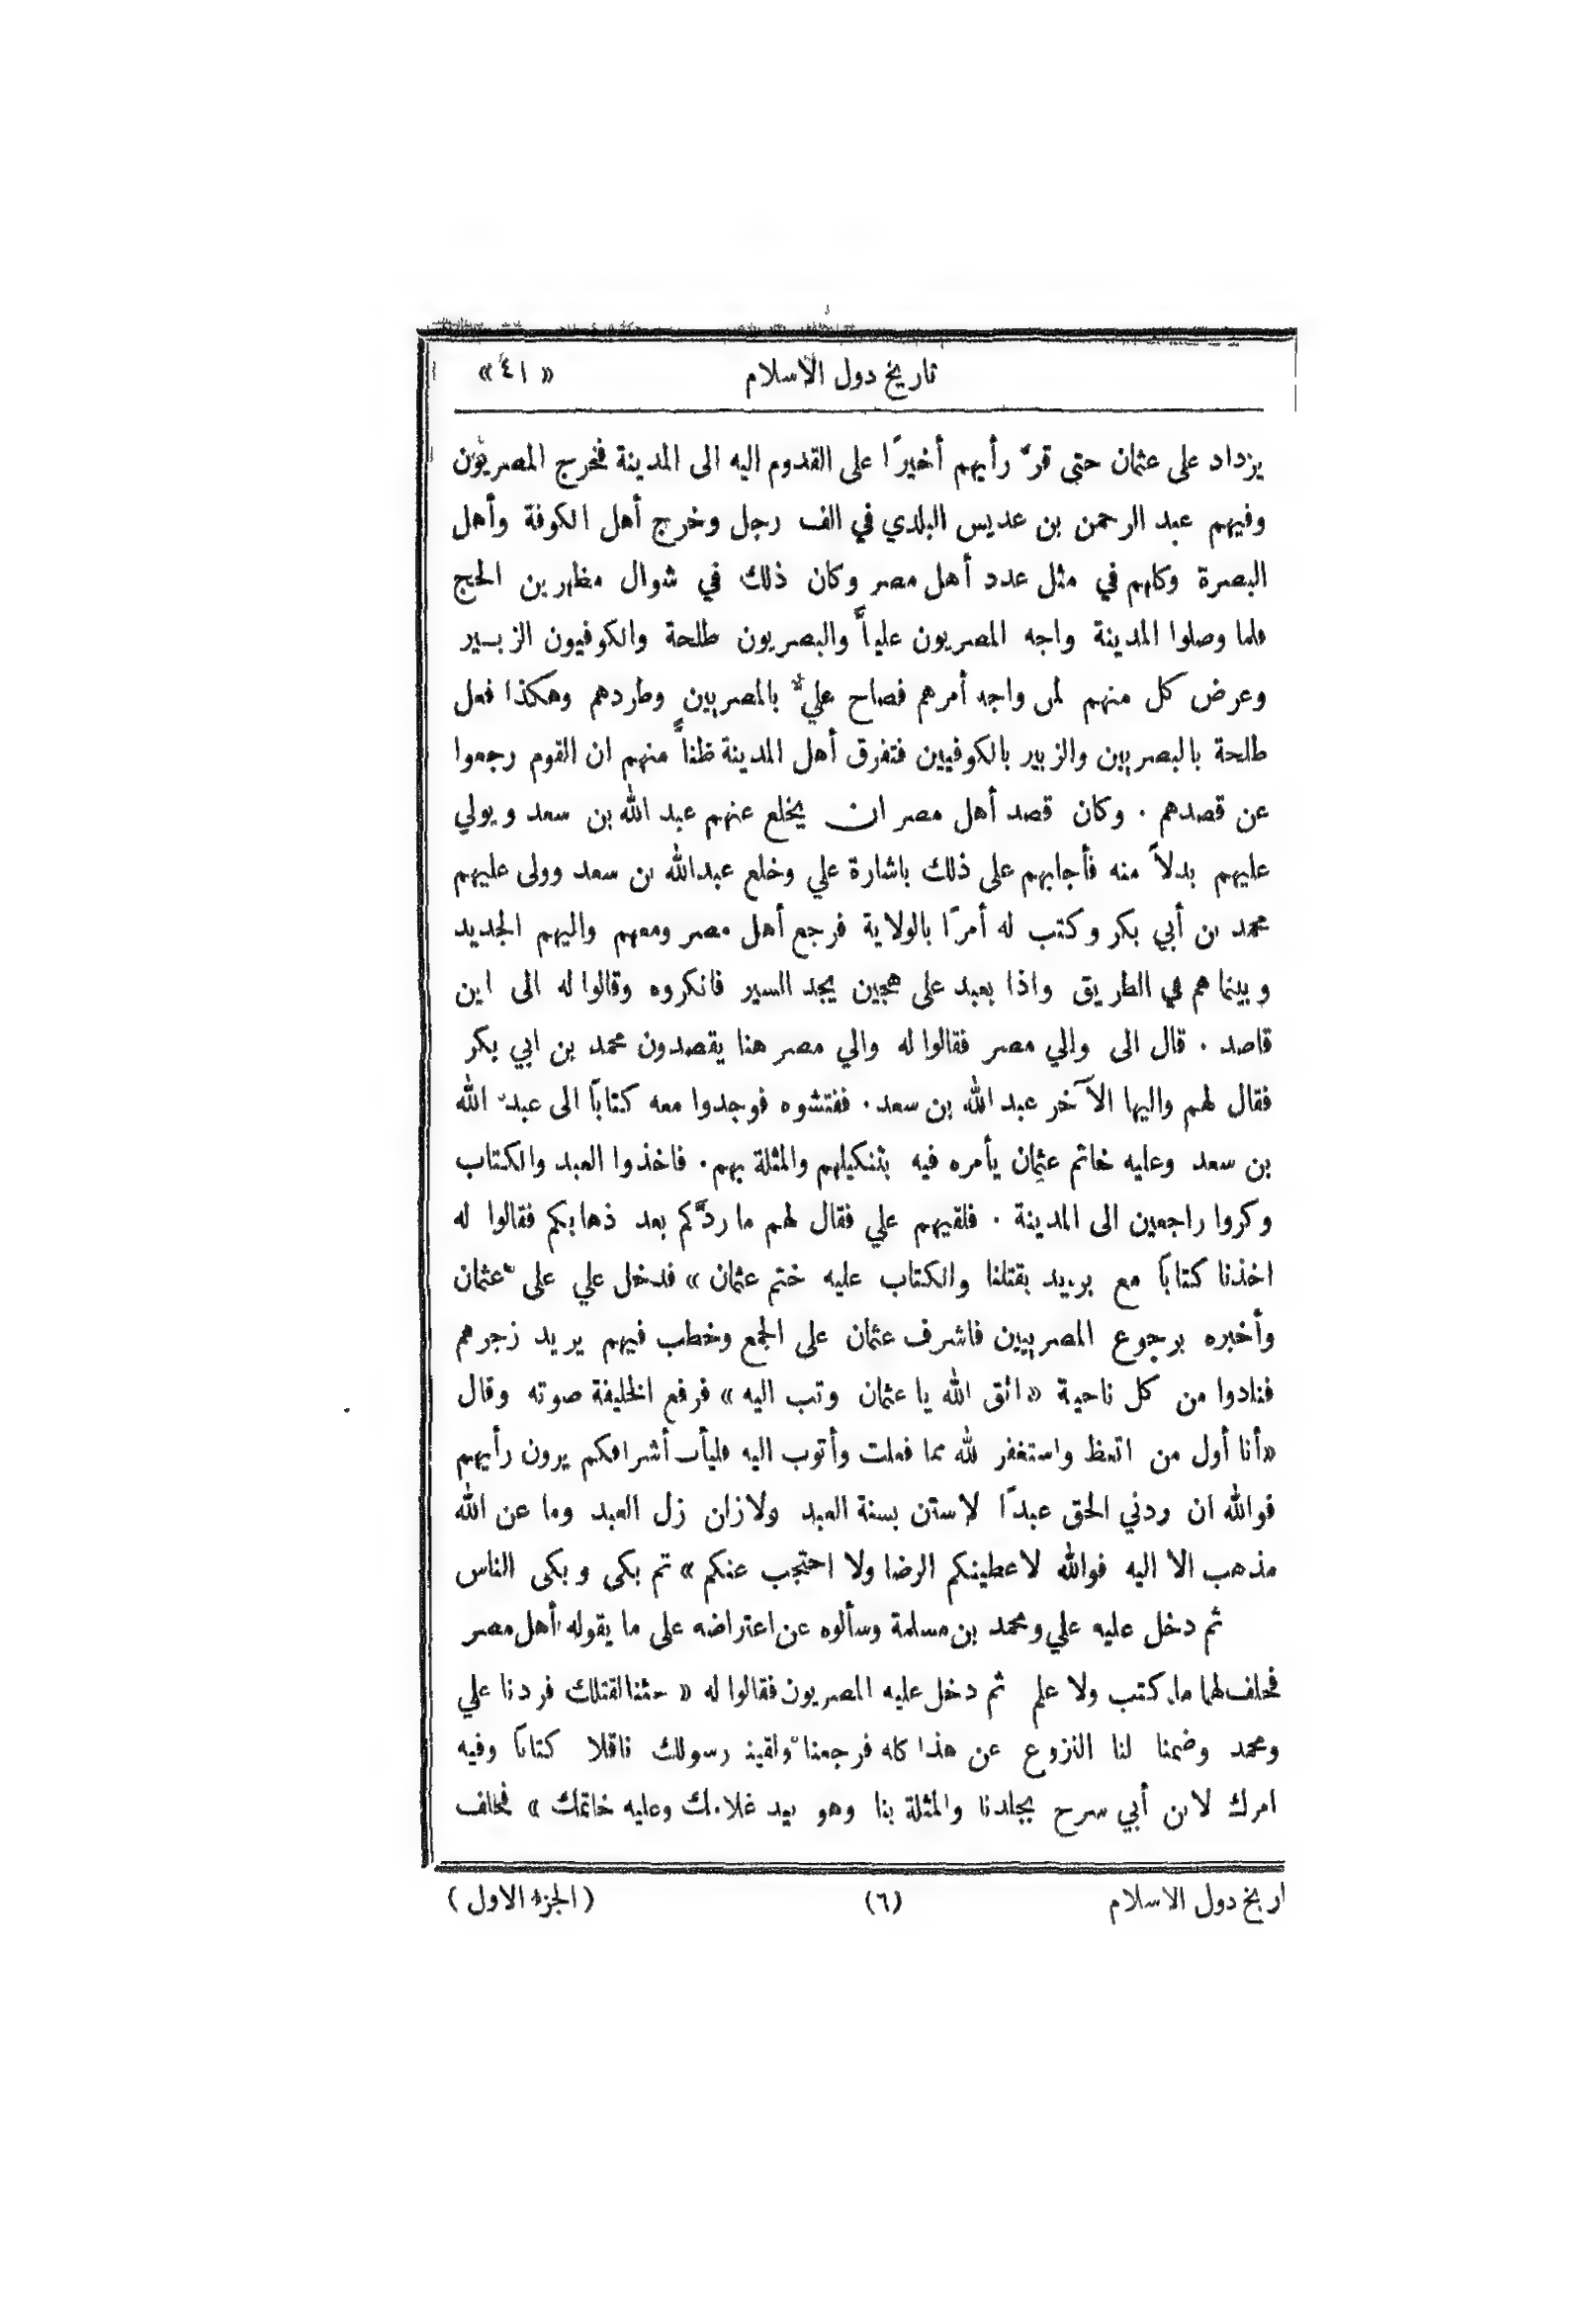 تاريخ دول الاسلام « ٤١ »
يزداد على عثمان حتى قرّ رأيهم أخيرًا على القدوم اليه الى المدينة فخرج المصريون
وفيهم عبد الرحمن بن عديس البلدي في الف رجل وخرج أهل الكوفة وأهل
البصرة وكلهم في مثل عدد أهل مصر وكان ذلك في شوال مظهرين الحج
فلما وصلوا المدينة واجه المصريون علياً والبصريون طلحة والكوفيون الزبير
وعرض كل منهم لمن واجه أمرهم فصاح عليّ بالمصريين وطردهم وهكذا فعل
طلحة بالبصريين والزبير بالكوفيين فتفرق أهل المدينة ظناً منهم ان القوم رجعوا
عن قصدهم . وكان قصد أهل مصر ان يخلع عنهم عبد الله بن سعد ويولي
عليهم بدلاً منه فأجابهم على ذلك باشارة علي وخلع عبدالله بن سعد وولى عليهم
محمد بن أبي بكر وكتب له أمرًا بالولاية فرجع أهل مصر ومعهم واليهم الجديد
وبينما هم في الطريق واذا بعبد على هجين يجد السير فانكروه وقالوا له الى اين
قاصد . قال الى والي مصر فقالوا له والي مصر هنا يقصدون محمد بن ابي بكر
فقال لهم واليها الآخر عبد الله بن سعد . ففتشوه فوجدوا معه كتاباً الى عبد الله
بن سعد وعليه خاتم عثمان يأمره فيه بتنكيلهم والمثلة بهم . فاخذوا العبد والكتاب
وكروا راجعين الى المدينة . فلقيهم علي فقال لهم ما ردَّكم بعد ذهابكم فقالوا له
اخذنا كتاباً مع بريد بقتلنا والكتاب عليه ختم عثمان » فدخل علي على عثمان
وأخبره برجوع المصريين فاشرف عثمان على الجمع وخطب فيهم يريد زجرهم
فنادوا من كل ناحية « اتق الله يا عثمان وتب اليه » فرفع الخليفة صوته وقال
«أنا أول من اتعظ واستغفر لله مما فعلت وأتوب اليه فليأت أشرافكم يرون رأيهم
فوالله ان ردني الحق عبدًا لاستن بسنة العبد ولاذلن ذل العبد وما عن الله
مذهب الا اليه فوالله لاعطينكم الرضا ولا احتجب عنكم » ثم بكى وبكى الناس
ثم دخل عليه علي ومحمد بن مسلمة وسألوه عن اعتراضه على ما يقوله أهل مصر
فحلف لهما ما كتب ولا علم ثم دخل عليه المصريون فقالوا له « جئنا لقتلك فردنا علي
ومحمد وضمنا لنا النزوع عن هذا كله فرجعنا ولقينا رسولك ناقلا كتاباً وفيه
امرك لابن أبي سرح بجلدنا والمثلة بنا وهو بيد غلامك وعليه خاتمك » فحلف
اريخ دول الاسلام (٦) (الجزء الاول)